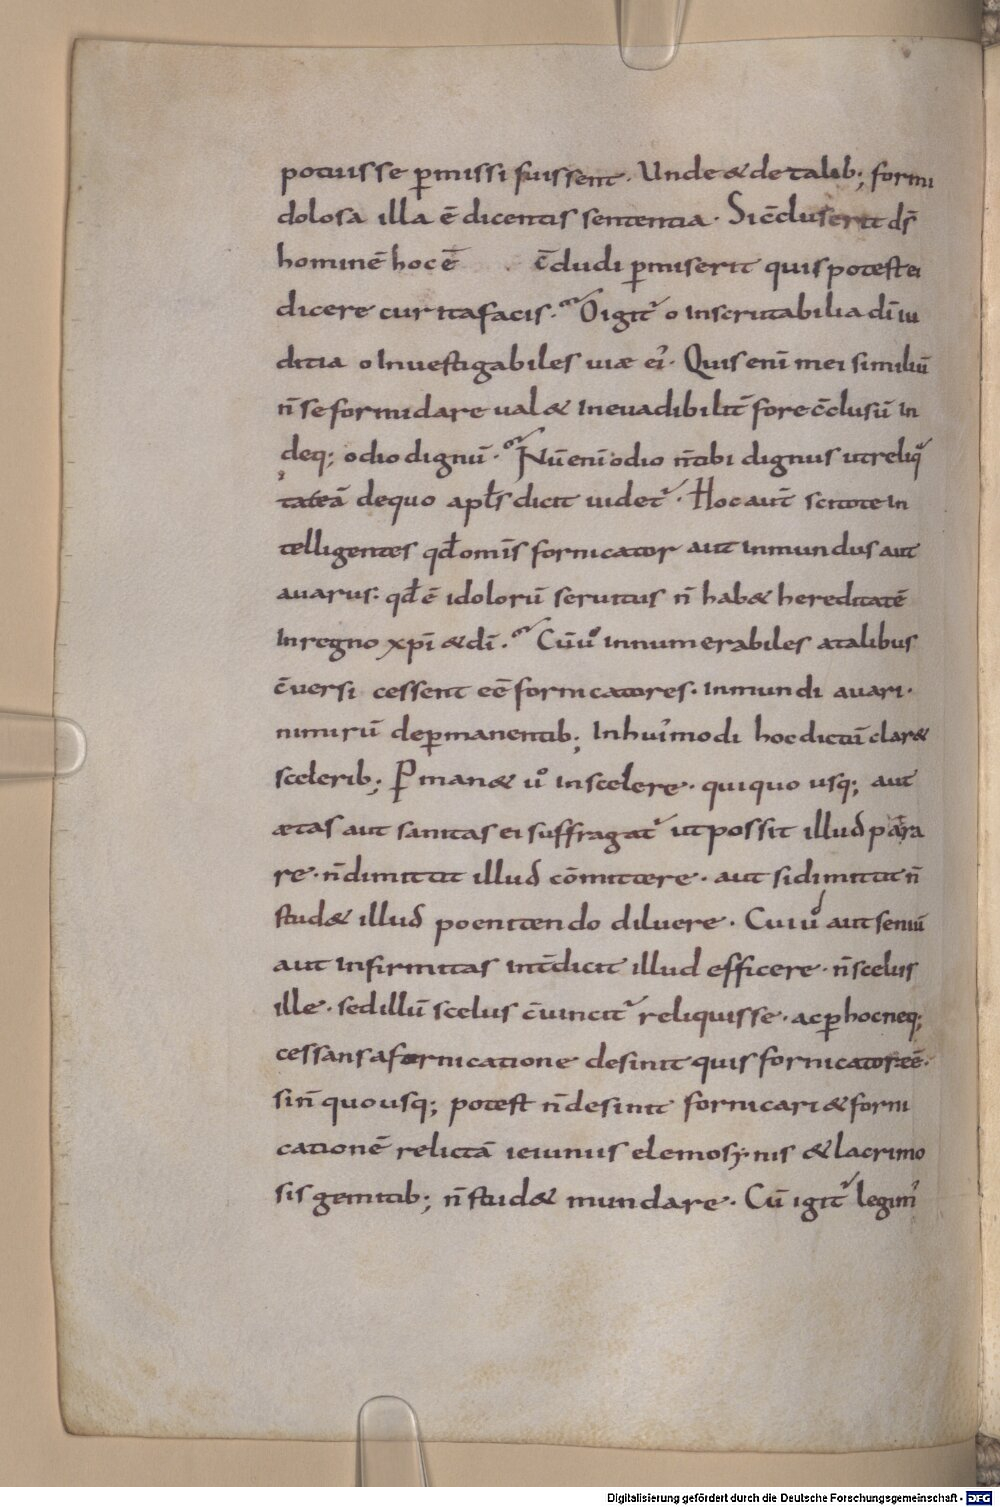 potuisse p̄missi fuissent. Unde & de talib; formi
dolosa illa ē dicentis sententia. Si c̄cluserit d̄s
hominē hoc ē c̄cludi p̄miserit quis potest ei
dicere cur ita facis. O igit̄ o inscrutabilia dī iu
ditia o Inuestigabiles uiæ ei'. Quis enī mei similiū
n̄ se formidare ual& ineuadibilit̄ fore c̄clusū in
deq; odio dignū. Nū enī odio n̄ tibi dignus ut reliq̄
taceā de quo apl̄s dicit uidet̄. Hoc aut̄ scitote in
telligentes qd̄ omīs fornicator aut inmundus aut
auarus: qd̄ ē idolorū seruitus n̄ hab& hereditatē
In regno xp̄i & dī. Cū u° innumerabiles a talibus
c̄uersi cessent eē fornicatores. inmundi auari.
nimirū de p̄manentib; In hui'modi hoc dictū clar&
scelerib; P̄man& u° in scelere. qui quo usq; aut
ætas aut sanitas ei suffragat̄ ut possit illud patra
re. n̄ dimittit illud cōmittere. aut si dimittit n̄
stud& illud poenitendo diluere. Cui u° aut seniū
aut infirmitas int̄dicit illud efficere. n̄ scelus
ille. sed illū scelus c̄uincit̄ reliquisse. ac p̄ hoc neq;
cessans a fornicatione desinit quis fornicator eē.
sin̄ quousq; potest n̄ desinit fornicari & forni
cationē relictā ieiuniis elemosynis & lacrimo
sis gemitib; n̄ stud& mundare. Cū igit̄ legim'
Digitalisierung gefördert durch die Deutsche Forschungsgemeinschaft - DFG